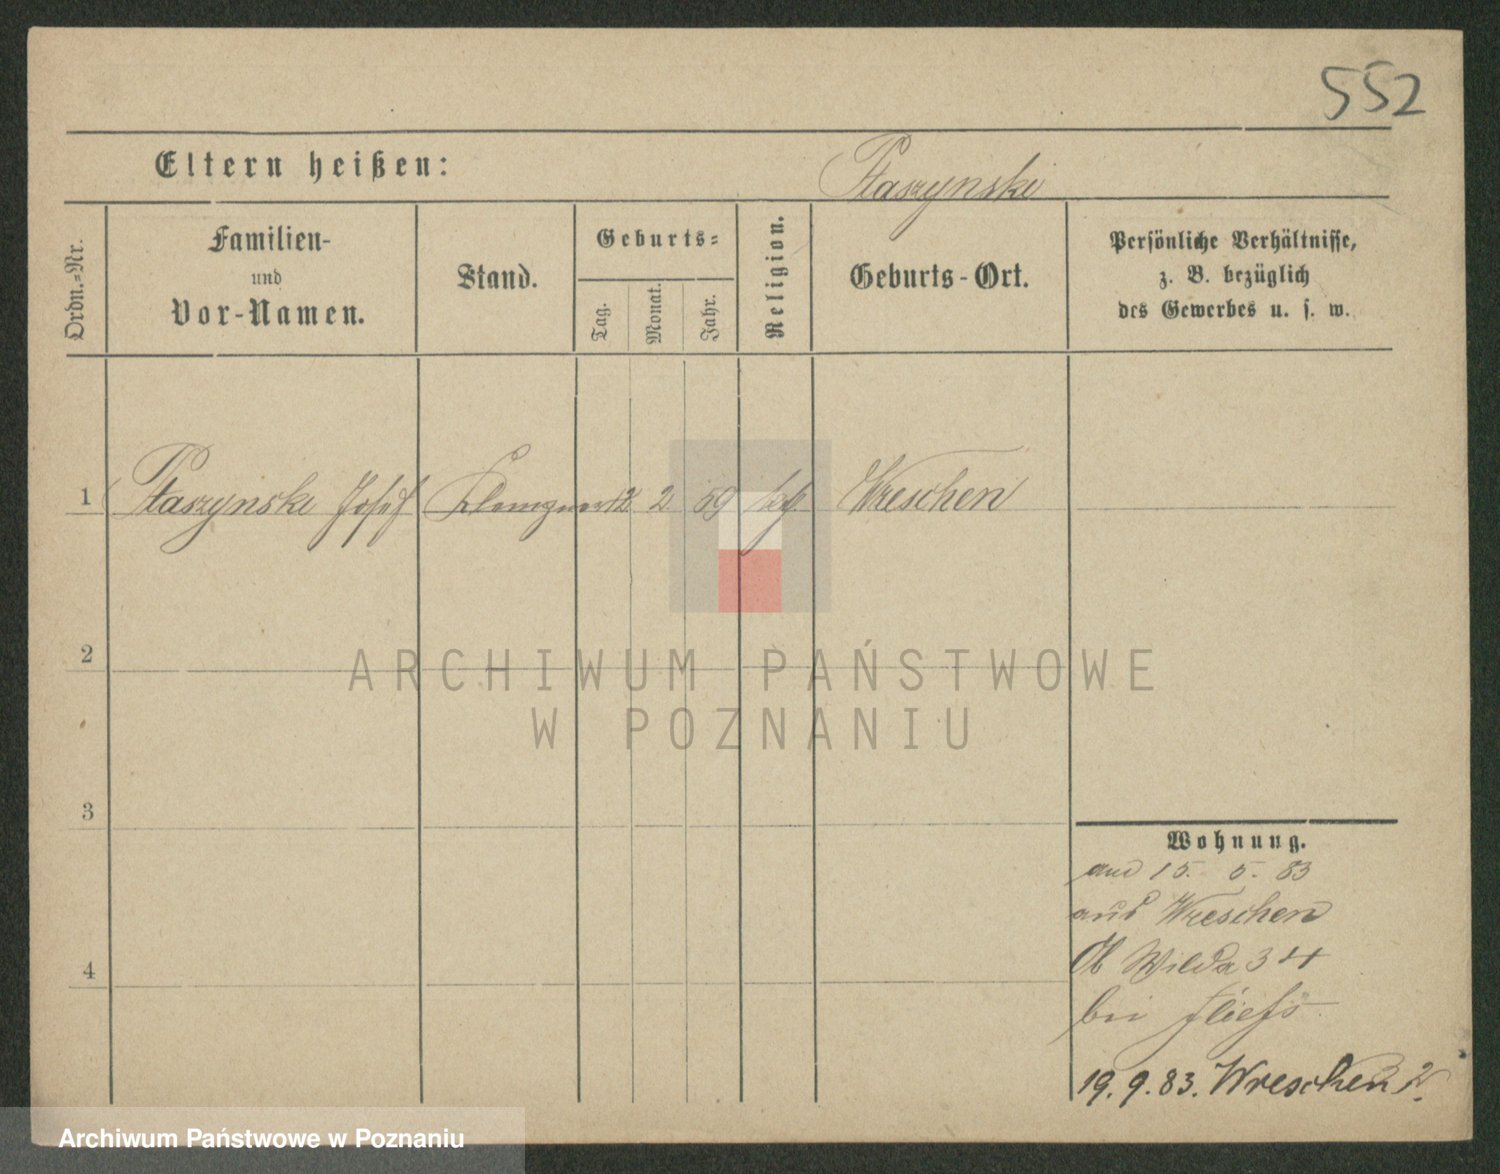 552
Eltern heißen:
Ptaszynski
Ordn.-Nr.
Familien-
und
Vor-Namen.
Stand.
Geburts-
Tag.
Monat.
Jahr.
Religion.
Geburts-Ort.
Persönliche Verhältnisse,
z. B. bezüglich
des Gewerbes u. s. w.
1 Ptaszynski Josef Klempner 12 2 59 kath. Wreschen
2
3
4
ARCHIWUM PAŃSTWOWE
W POZNANIU
Wohnung.
15. 5. 83
aus Wreschen
Ob Wilda 34
bei Fließ
19. 9. 83. Wreschen
Archiwum Państwowe w Poznaniu